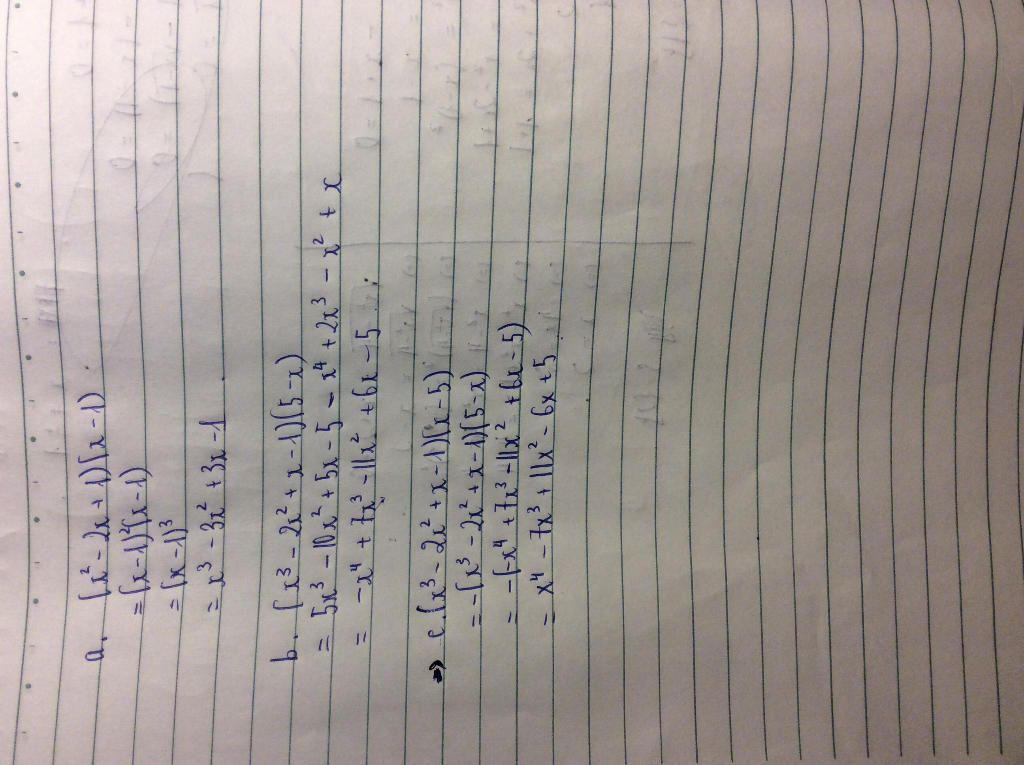 a. (x² - 2x + 1)(x - 1)
= (x - 1)²(x - 1)
= (x - 1)³
= x³ - 3x² + 3x - 1
b. (x³ - 2x² + x - 1)(5 - x)
= 5x³ - 10x² + 5x - 5 - x⁴ + 2x³ - x² + x
= -x⁴ + 7x³ - 11x² + 6x - 5
=> c. (x³ - 2x² + x - 1)(x - 5)
= -(x³ - 2x² + x - 1)(5 - x)
= -(-x⁴ + 7x³ - 11x² + 6x - 5)
= x⁴ - 7x³ + 11x² - 6x + 5